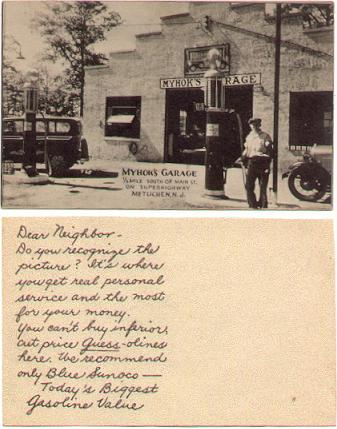 MYHOK'S GARAGE
MYHOK'S GARAGE
½ MILE SOUTH OF MAIN ST.
ON SUPERHIGHWAY
METUCHEN, N.J.
Dear Neighbor-
Do you recognize the
picture? It's where
you get real personal
service and the most
for your money.
You can't buy inferior,
cut price Guess-olines
here. We recommend
only Blue Sunoco —
Today's Biggest
Gasoline Value